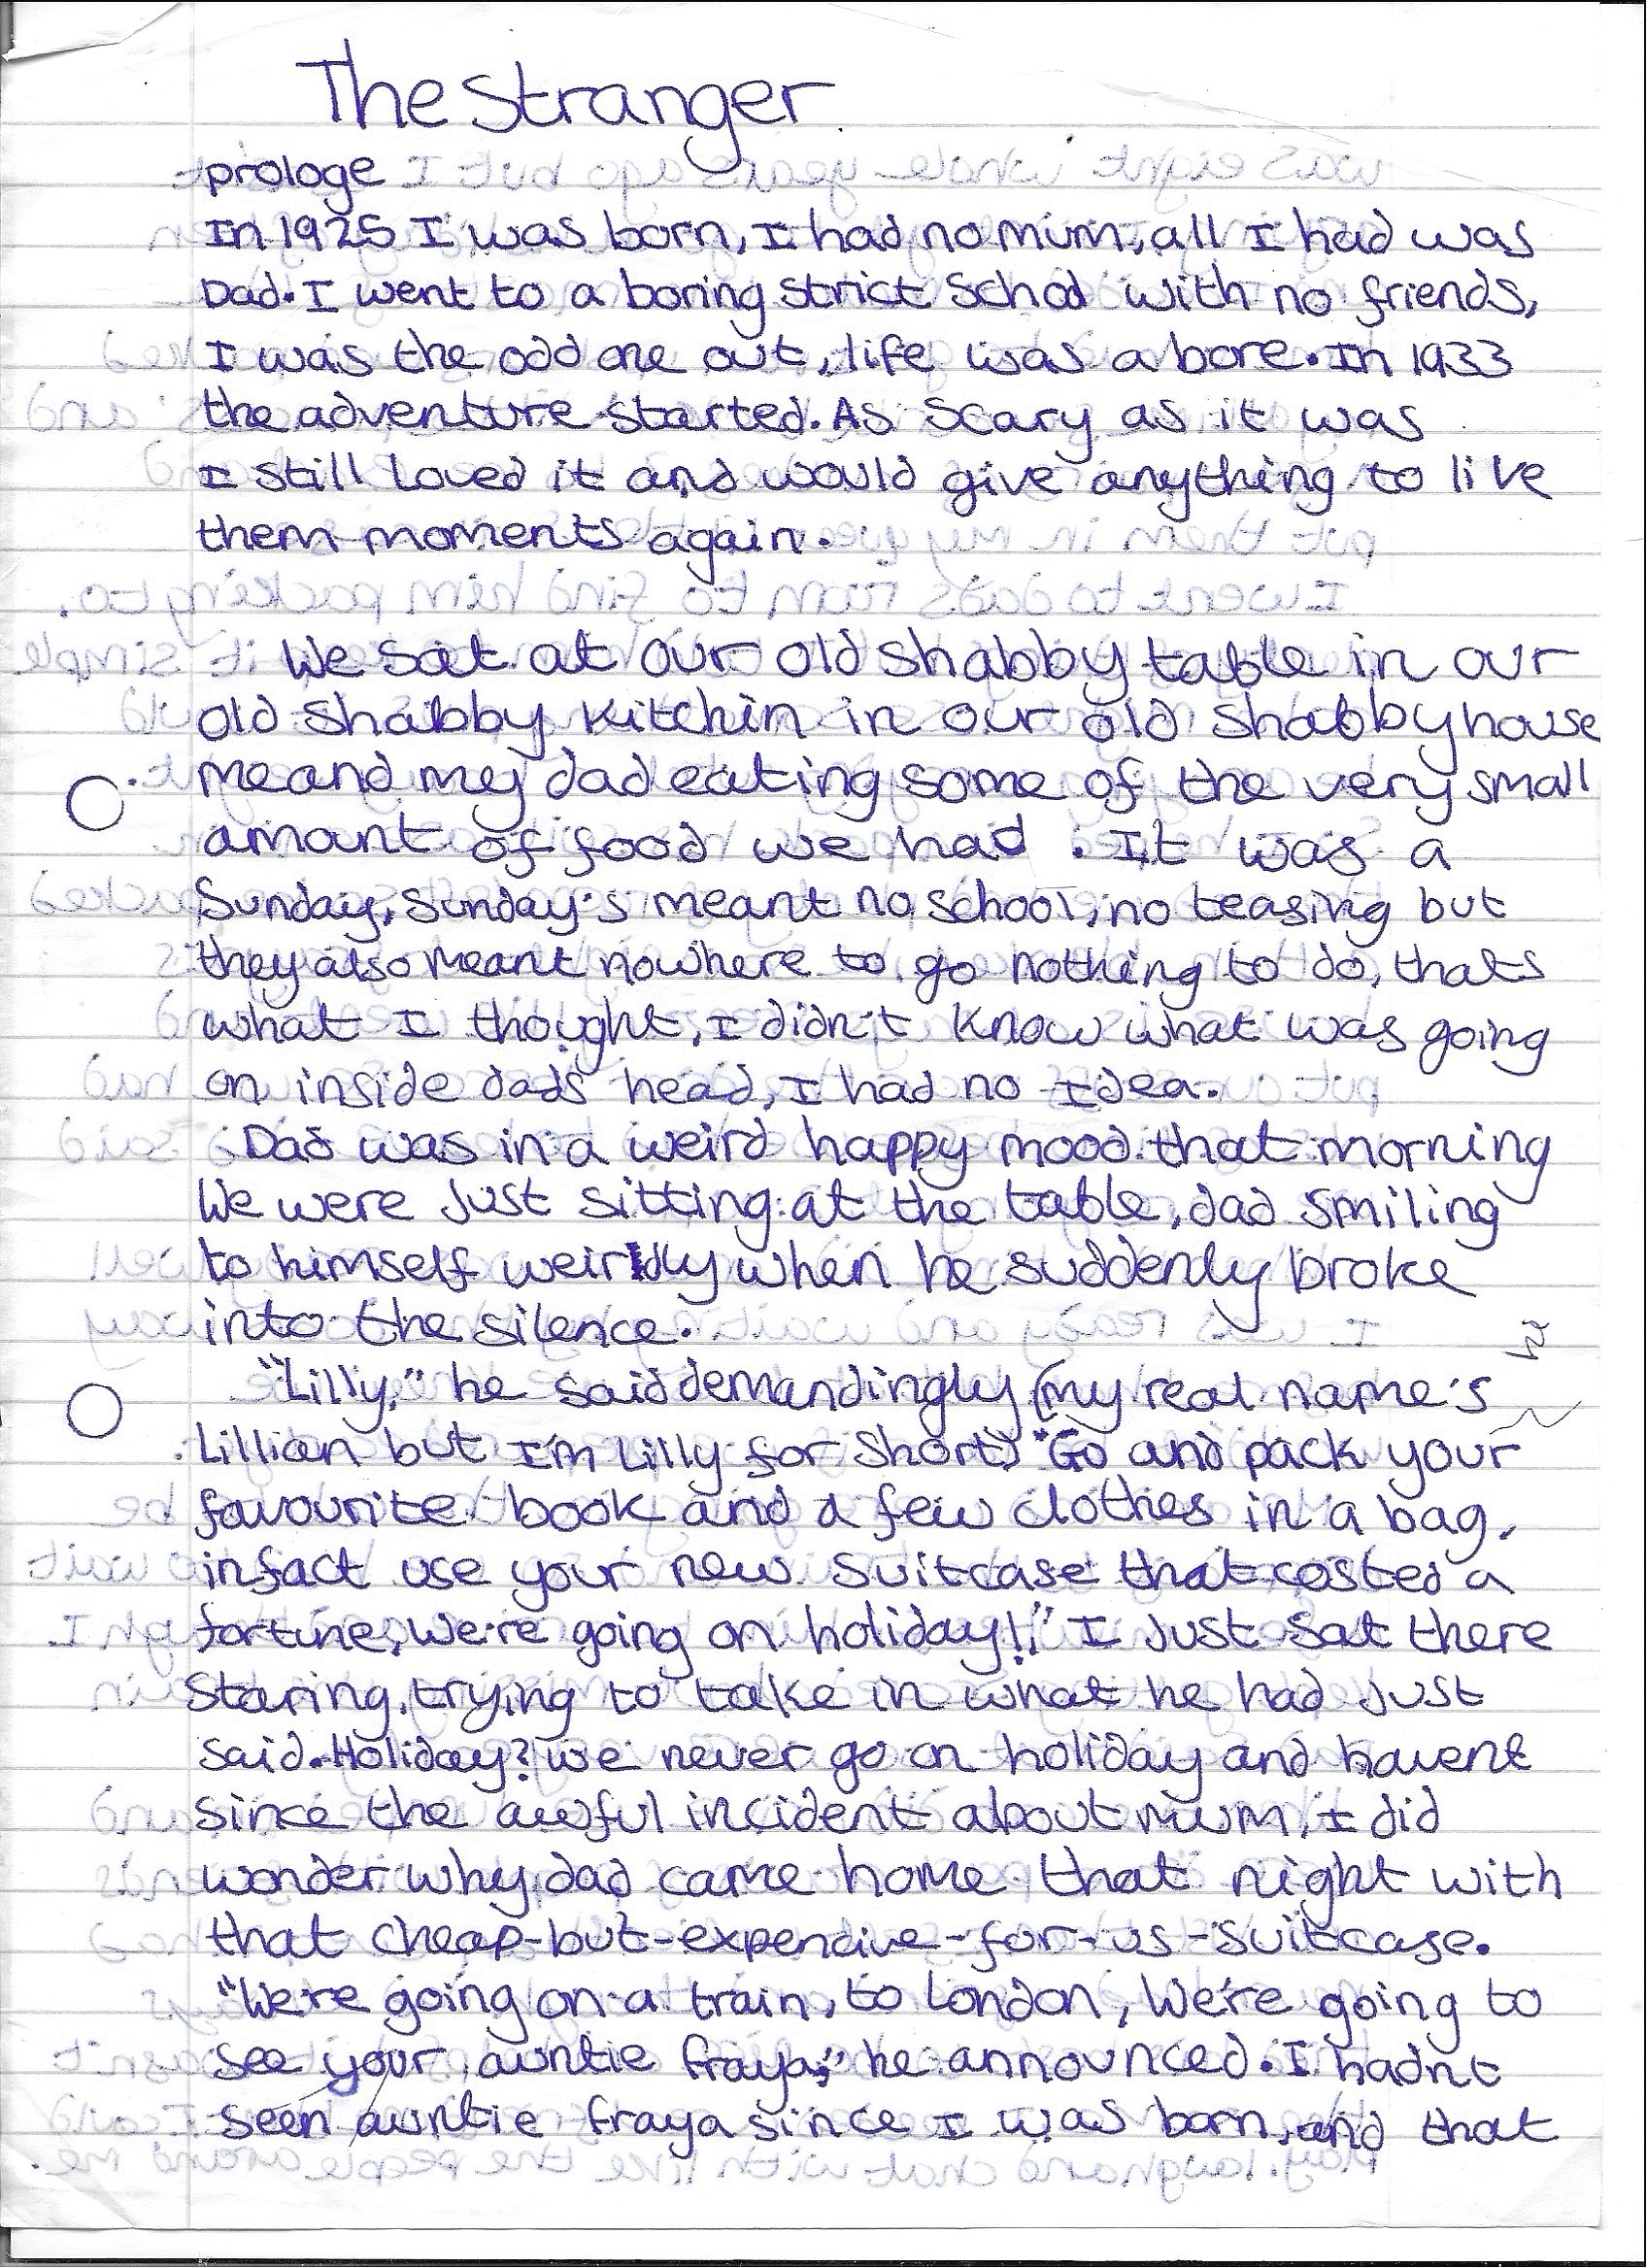 The Stranger
prologe
In 1925 I was born, I had no mum, all I had was
Dad. I went to a boring strict school with no friends,
I was the odd one out, life was a bore. In 1933
the adventure started. As scary as it was
I still loved it and would give anything to live
them moments again.
We sat at our old shabby table in our
old shabby kitchin in our old shabby house
me and my dad eating some of the very small
amount of food we had. It was a
Sunday, Sunday's meant no school, no teasing but
they also meant nowhere to go nothing to do, thats
what I thought, I didn't know what was going
on inside dads head, I had no Idea.
Dad was in a weird happy mood that morning
We were just sitting at the table, dad smiling
to himself weirdly when he suddenly broke
into the silence.
"Lilly," he said demandingly (my real name's
Lillian but I'm Lilly for short) "Go and pack your
favourite book and a few clothes in a bag,
infact use your new suitcase that costed a
fortune, We're going on holiday!," I just sat there
staring, trying to take in what he had just
said. Holiday? we never go on holiday and havent
since the awful incident about mum, I did
wonder why dad came home that night with
that cheap-but-expencive-for-us-suitcase.
"We're going on a train, to London, We're going to
see your auntie fraya," he announced. I hadn't
seen auntie fraya since I was born, and that